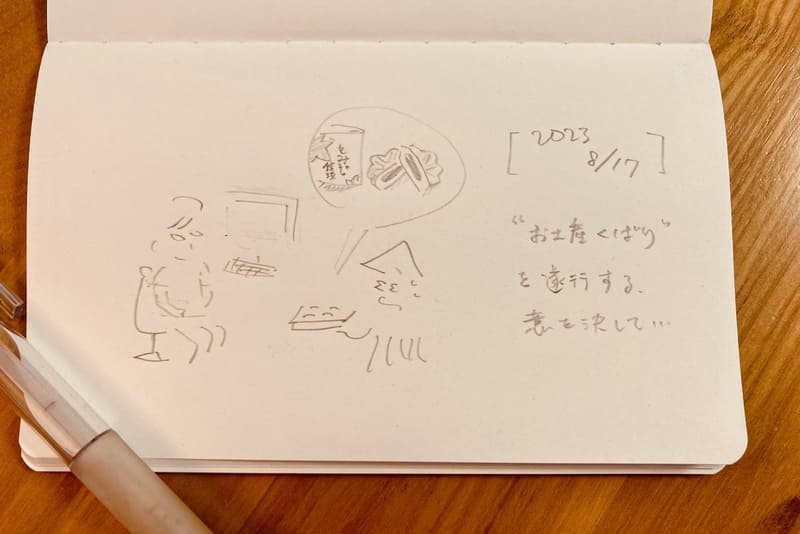 もみぢ
饅頭
[ 2023
8/17 ]
"お土産くばり"
を遂行する、
意を決して...